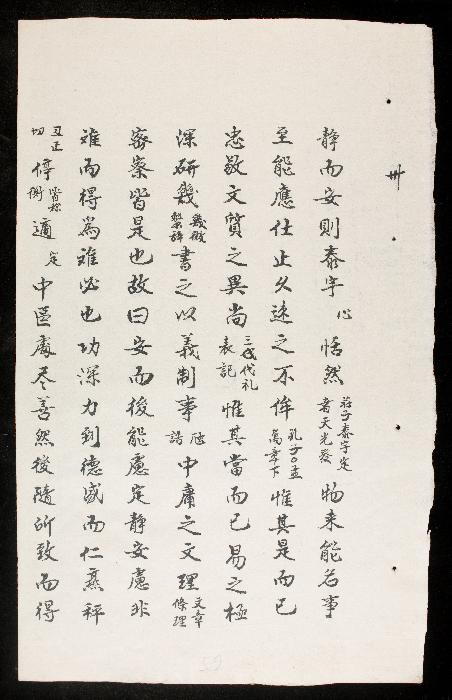 卌
静而安則泰宇心恬然莊子泰宇定者天光發物来能名事
至能應仕止久速之不侔孔子〇孟萬章下惟其是而已
忠敬文質之異尚三代代礼表記惟其當而已易之極
深研幾幾微繫辞書之以義制事虺誥中庸之文理文章條理
密察皆是也故曰安而後能慮定静安慮非
难而得為难必也功深力到德盛而仁熟秤
丑正切停皆称衡適定中區處尽善然後隨所致而得